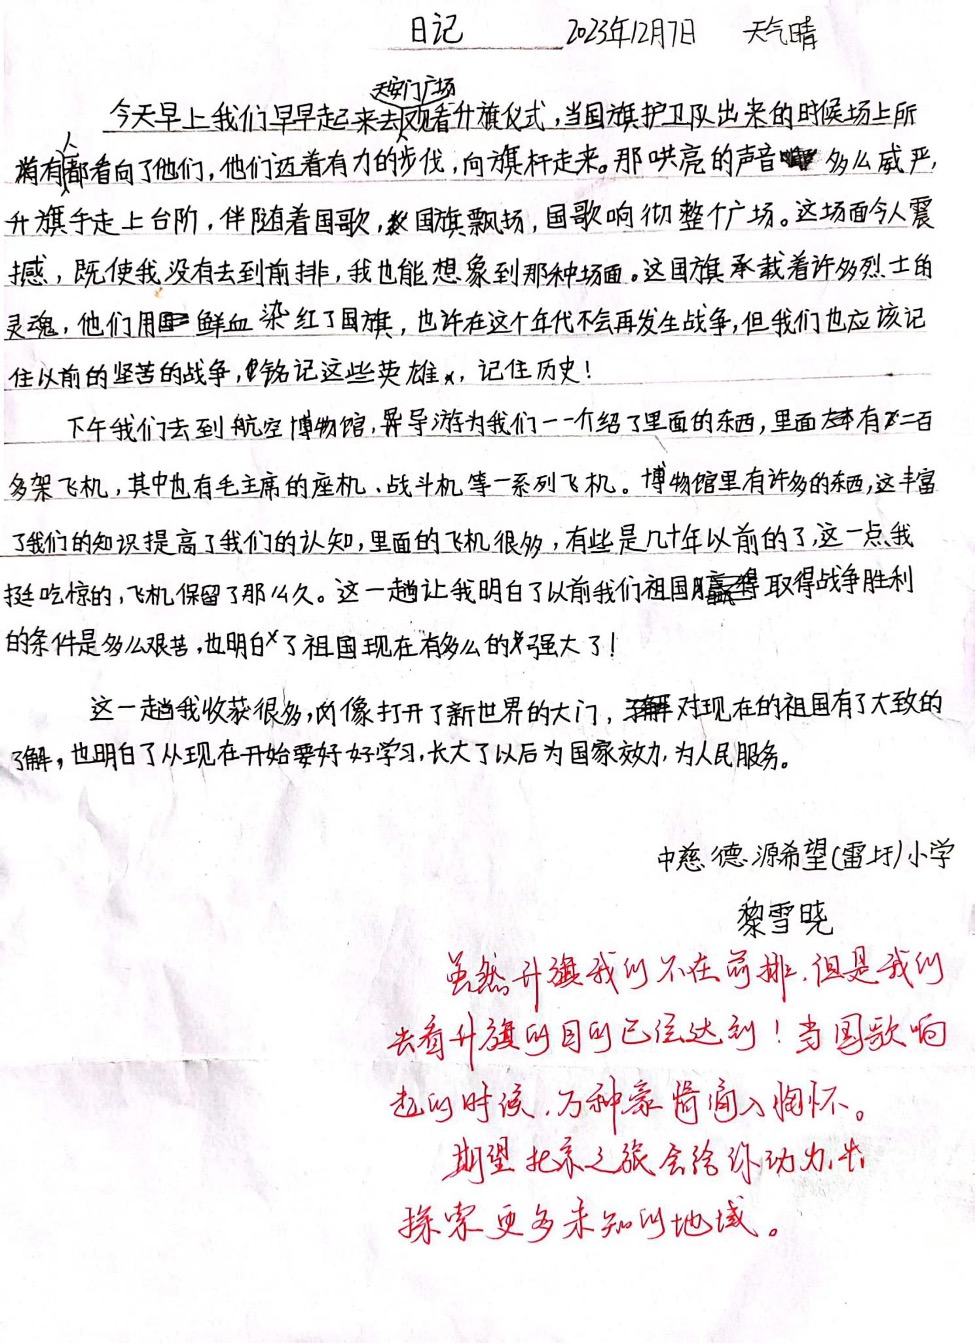 日记 2023年12月7日 天气晴
天安门广场
今天早上我们早早起来去观看升旗仪式,当国旗护卫队出来的时候场上所
有人都看向了他们,他们迈着有力的步伐,向旗杆走来。那哄亮的声音多么威严,
升旗手走上台阶,伴随着国歌,国旗飘扬,国歌响彻整个广场。这场面令人震
撼,既使我没有去到前排,我也能想象到那种场面。这国旗承载着许多烈士的
灵魂,他们用鲜血染红了国旗,也许在这个年代不会再发生战争,但我们也应该记
住以前的坚苦的战争,铭记这些英雄,记住历史!
下午我们去到航空博物馆,导游为我们一一介绍了里面的东西,里面有二百
多架飞机,其中也有毛主席的座机、战斗机等一系列飞机。博物馆里有许多的东西,这丰富
了我们的知识提高了我们的认知,里面的飞机很多,有些是几十年以前的了,这一点我
挺吃惊的,飞机保留了那么久。这一趟让我明白了以前我们祖国取得战争胜利
的条件是多么艰苦,也明白了祖国现在有多么的强大了!
这一趟我收获很多,像打开了新世界的大门,对现在的祖国有了大致的
了解,也明白了从现在开始要好好学习,长大了以后为国家效力,为人民服务。
中慈德源希望(雷圩)小学
黎雪晓
虽然升旗我们不在前排,但是我们
去看升旗的目的已经达到!当国歌响
起的时候,万种豪情涌入胸怀。
期望北京之旅会给你动力,去
探索更多未知的地域。